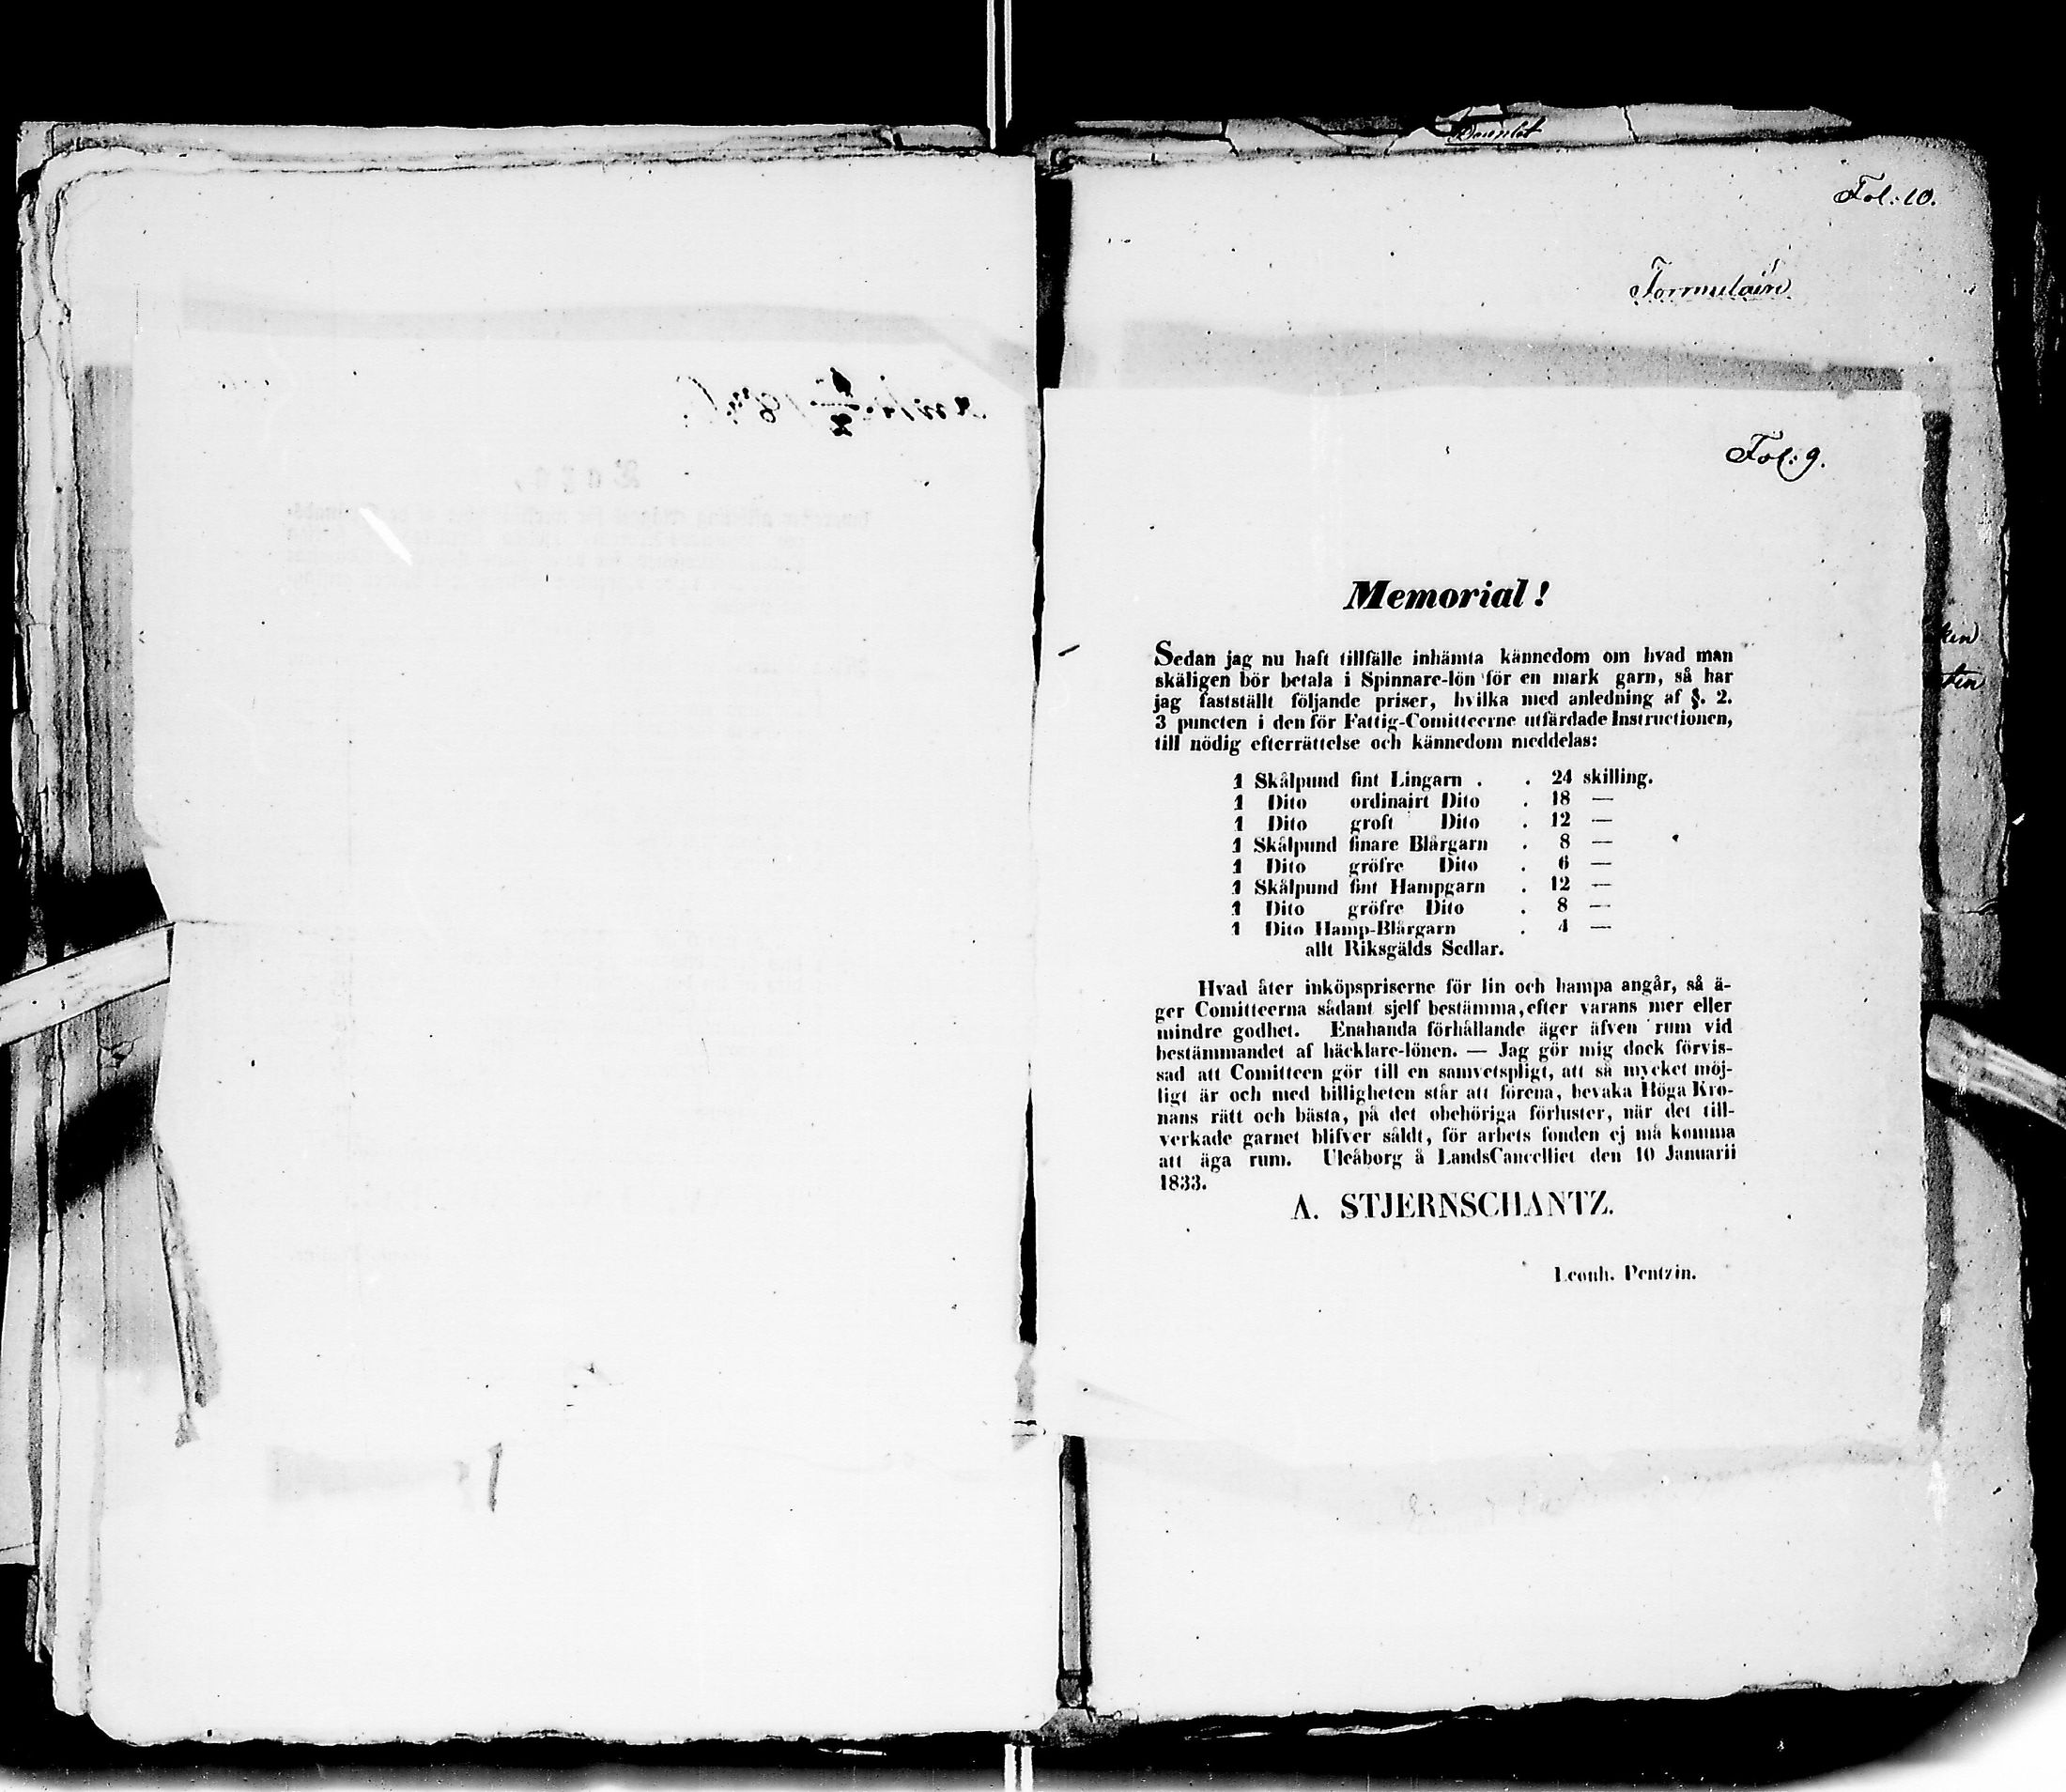 Fol: 10.
Formulair
Fol: 9.
Memorial!
Sedan jag nu haft tillfälle inhämta kännedom om hvad man
skäligen bör betala i Spinnare-lön för en mark garn, så har
jag fastställt följande priser, hvilka med anledning af §. 2.
3 puncten i den för Fattig-Comitteerne utfärdade Instructionen,
till nödig efterrättelse och kännedom meddelas:
1 Skålpund fint Lingarn . . 24 skilling.
1 Dito ordinairt Dito . 18 —
1 Dito groft Dito . 12 —
1 Skålpund finare Blårgarn . 8 —
1 Dito gröfre Dito . 6 —
1 Skålpund fint Hampgarn . 12 —
1 Dito gröfre Dito . 8 —
1 Dito Hamp-Blårgarn . 4 —
allt Riksgälds Sedlar.
Hvad åter inköpspriserne för lin och hampa angår, så ä-
ger Comitteerna sådant sjelf bestämma, efter varans mer eller
mindre godhet. Enahanda förhållande äger äfven rum vid
bestämmandet af häcklare-lönen. — Jag gör mig dock förvis-
sad att Comitteen gör till en samvetspligt, att så mycket möj-
ligt är och med billigheten står att förena, bevaka Höga Kro-
nans rätt och bästa, på det obehöriga förluster, när det till-
verkade garnet blifver såldt, för arbets fonden ej må komma
att äga rum. Uleåborg å LandsCancelliet den 10 Januarii
1833.
A. STJERNSCHANTZ.
Leonh. Pentzin.